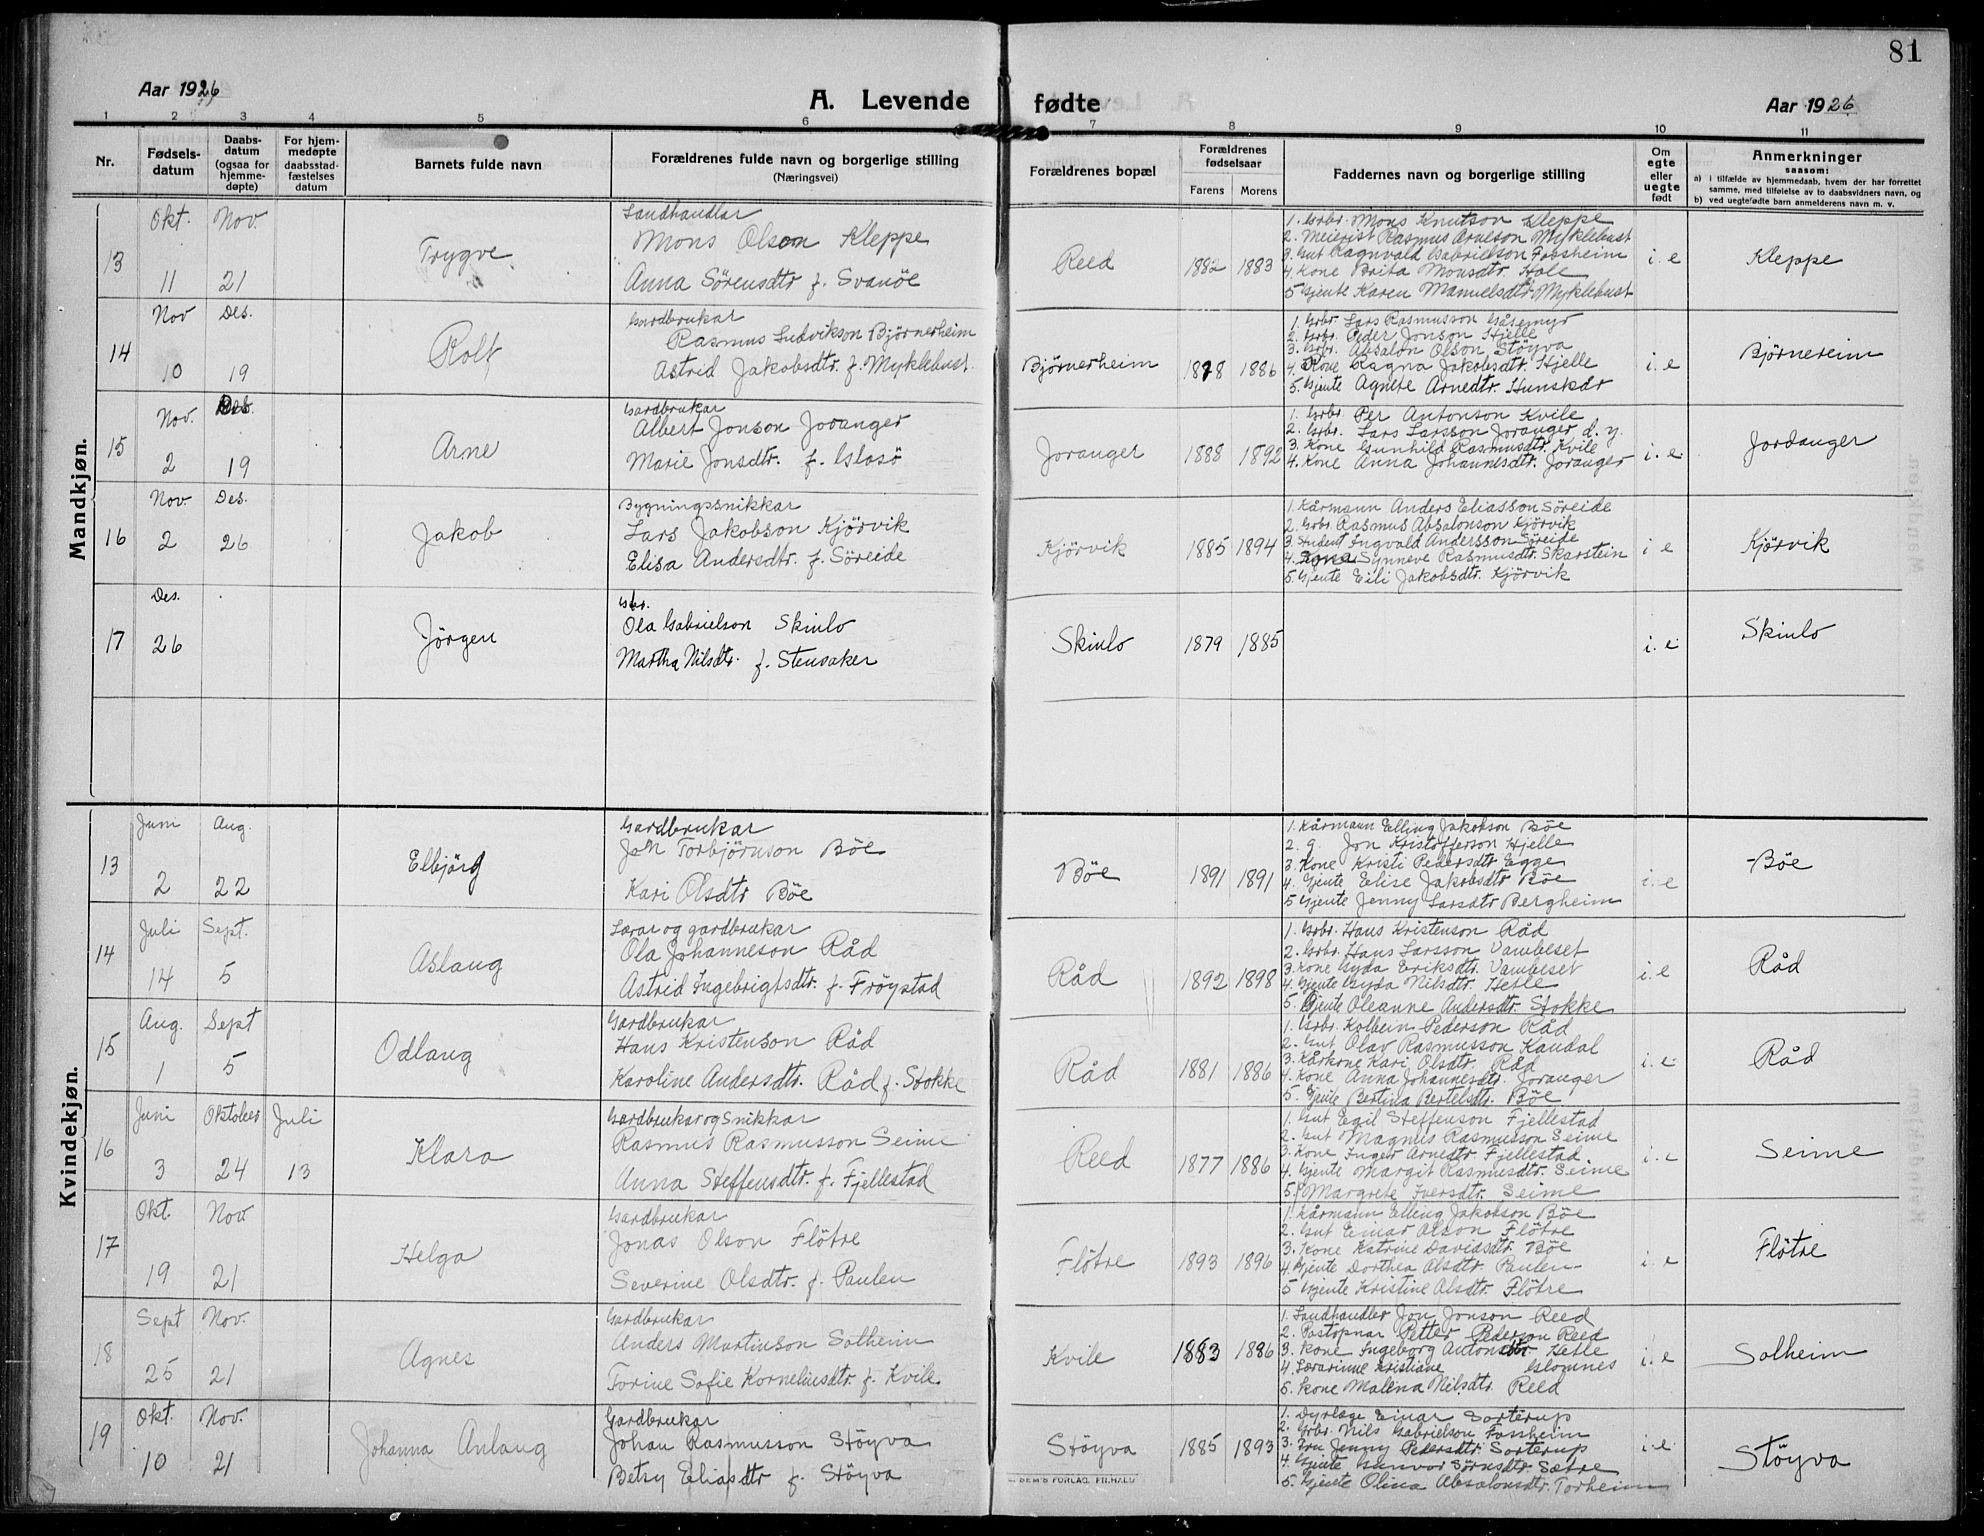 81
Aar 1926
A. Levende fødte
Aar 1926
1 2 3 4 5 6 7 8 9 10 11
Nr.
Fødsels-datum
Daabs-datum (ogsaa for hjemme-døpte)
For hjem-medøpte daabsstad-fæstelses datum
Barnets fulde navn
Forældrenes fulde navn og borgerlige stilling
(Næringsvei)
Forældrenes bopæl
Forældrenes fødselsaar
Farens Morens
Faddernes navn og borgerlige stilling
Om egte eller uegte født
Anmerkninger
saasom:
a) i tilfælde av hjemmedaab, hvem der har forrettet
samme, med tilføielse av to daabsvidners navn, og
b) ved uegtefødte barn anmelderens navn m. v.
Mandkjøn.
13 Okt. 11 Nov. 21
Trygve
Landhandlar
Mons Olson Kleppe
Anna Sörensdtr f. Svanöe
Reed 1882 1883
1. Grbr. Mons Knutson Kleppe
2. Meierist Rasmus Arneson Myklebust
3. Gut Ragnvald Gabrielson Fossheim
4. Kone Brita Monsdtr. Hole
5. Gjente Karen Manuelsdtr. Myklebust
i. e Kleppe
14 Nov 10 Des. 19
Rolf
Gardbrukar
Rasmus Ludvikson Bjørnerheim
Astrid Jakobsdtr. f. Myklebust
Bjørnerheim 1878 1886
1. Grbr. Lars Rasmusson Gåsemyr
2. Grbr. Peder Jonson Hjelle
3. Grbr. Absalon Olson Støyva
4. Kone Ragna Jakobsdtr. Hjelle
5. Gjente Agnete Arnedtr. Hunskår
i. e Bjørnereim
15 Nov. 2 Des. 19
Arne
Gardbrukar
Albert Jonson Joranger
Marie Jonsdtr. f. Glasö
Joranger 1888 1892
1. Grbr. Per Antonson Kvile
2. Grbr. Lars Larsson Joranger d. y.
3. Kone Gunhild Rasmusdtr. Kvile
4. Kone Anna Johannesdtr. Joranger
i. e. Jordanger
16 Nov. 2 Des. 26
Jakob
Bygningssnikkar
Lars Jakobson Kjörvik
Elisa Andersdtr. f. Söreide
Kjörvik 1885 1894
1. Kårmann Anders Eliasson Söreide
2. Grbr. Rasmus Absalonson Kjörvik
3. Student Ingvald Andersson Söreide
4. Synneve Rasmusdtr. Skarstein
5. Gjente Eili Jakobsdtr. Kjörvik
i e Kjørvik
17 Des. 26
Jörgen
Gbr.
Ola Gabrielson Skinlo
Martha Nilsdtr. f. Stensaker
Skinlo 1879 1885
i. e Skinlo
Kvindekjøn.
13 Juni 2 Aug. 22
Elbjörg
Gardbrukar
Joh Torbjörnson Böe
Kari Olsdtr Böe
Böe 1891 1891
1. Kårmann Elling Jakobson Böe
2. g. Jon Kristofferson Hjelle
3. Kone Kristi Pedersdtr. Egge
4. Gjente Elise Jakobsdtr Böe
5 Gjente Jenny Larsdtr Bergheim
i. e Böe
14 Juli 14 Sept. 5
Aslaug
Lærar og gardbrukar
Ola Johanneson Råd
Astrid Ingebrigtsdtr. f. Fröystad
Råd 1892 1898
1. Grbr. Hans Kristenson Råd
2. Grbr. Hans Larsson Vambeset
3. Kone Gyda Eriksdtr. Vambeset
4. Gjente Gyda Nilsdtr. Hetle
5. Gjente Oleanne Andersdtr. Stokke
i. e Råd
15 Aug. 1 Sept 5
Odlaug
Gardbrukar
Hans Kristenson Råd
Karoline Andersdtr. Råd f. Stokke
Råd 1881 1886
1. Grbr. Kolbein Pederson Råd
2. Gut Olav Rasmusson Kandal
3. Kårkone Kari Olsdtr. Råd
4. Kone Anna Johannesdtr. Joranger
5. Gjente Bertina Bertelsdtr. Böe
i. e. Råd
16 Juni 3 Oktober 24 Juli 13
Klara
Gardbrukar og Snikkar
Rasmus Rasmusson Seime
Anna Steffensdtr. f. Fjellestad
Reed 1877 1886
1. Gut Egil Steffenson Fjellestad
2. Gut Magnus Rasmusson Seime
3. Kone Inger Arnedtr. Fjellestad
4. Gjente Margit Rasmusdtr. Seime
5. Margrete Iversdtr. Seime
i. e Seime
17 Okt. 19 Nov 21
Helga
Gardbrukar
Jonas Olson Flötre
Severine Olsdtr. f. Paulen
Flötre 1893 1896
1. Kårmann Elling Jakobson Böe
2. Gut Einar Olson Flötre
3. Kone Katrine Davidsdtr. Böe
4. Gjente Dorthea Olsdtr. Paulen
5 Gjente Kristine Olsdtr. Flötre
i. e Flötre
18 Sept 25 Nov. 21
Agnes
Gardbrukar
Anders Martinson Solheim
Torine Sofie Korneliusdtr. f. Kvile
Kvile 1883 1886
1. Landhandler Jon Jonson Reed
2. Postopnar Petter Pederson Reed
3. Kone Ingeborg Antonsdtr. Hetle
4. Lærarinne Kristiane Glomnes
5. Kone Malena Nilsdtr. Reed
i. e Solheim
19 Okt. 10 Nov. 21
Johanna Anlaug
Gardbrukar
Johan Rasmusson Stöyva
Betsy Eliasdtr f. Stöyva
Stöyva 1885 1893
1. Dyrlæge Einar Sorterup
2. Grbr. Nils Gabrielson Fossheim
3. Fru Jenny Pedersdtr. Sorterup
4. Gjente Gunvor Sörnsdtr. Sætre
5. Gjente Olina Absalonsdtr. Torheim
i. e. Stöyva
SEM'S FORLAG, FR.HALD